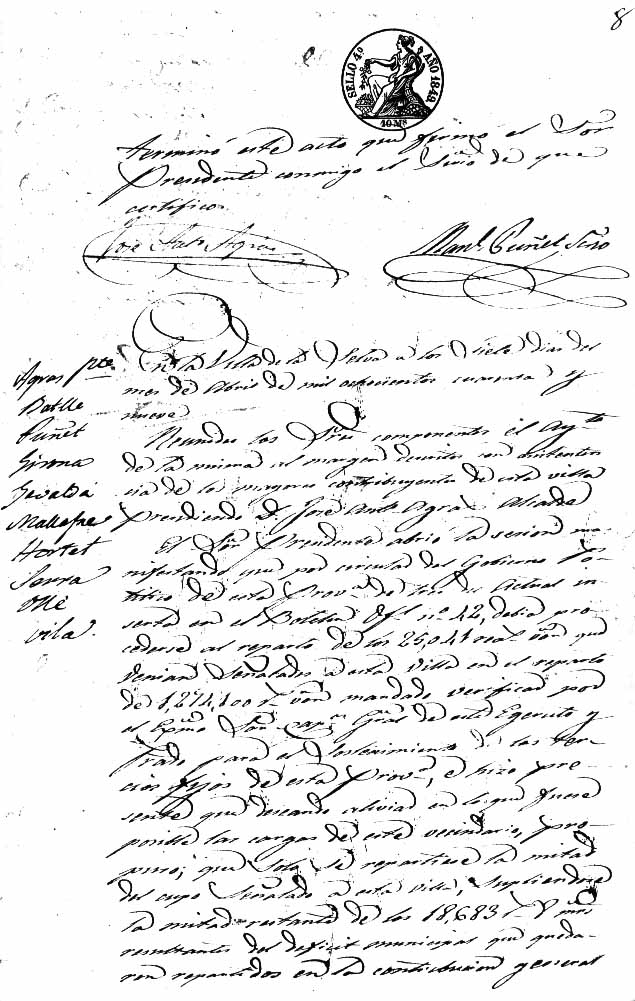 8
SELLO 4º AÑO 1849
40 Ms
terminó este acto que firmo el Sor
Presidente conmigo el Srio de que
certifico.
José Anto Agras
Manl. Puñet Srio
En la Villa de la Selva a los Siete dias del
mes de Abril de mil ochocientos cuarenta y
nueve
Agras pte.
Batlle
Puñet
Girona
Mallafre
Hortet
Serra
Ollé
Vila
Reunidos los Sres componentes el Aygto
de la misma al margen escritos con asisten
cia de los mayores contribuyentes de esta villa
Presidiendo D. José Anto Agras Alcalde
El Sor Presidente abrió la sesion ma
nifestando que por circular del Gobierno Po-
litico de esta Prova de tres del Actual in
serta en el Boletin Ofl. nº 42, debia pro
cederse al reparto de los 25,041 reals von que
venian Señalados a esta Villa en el reparto
de 1,274,100 rs von mandado verificar por
el Exmo Sor Capn Gral de este Egercito y
para el Sostenimiento de los ter-
cios fijos de esta Prova, e hizo pre-
sente que deseando aliviar en lo que fuese
posible las cargas de este vecindario, pro-
puso; que Solo se repartiese la mitad
del cupo Señalado a esta Villa, Supliendose
la mitad restante de los 18,683 rs
resultantes del deficit municipal que queda-
ron repartidos en la contribucion general